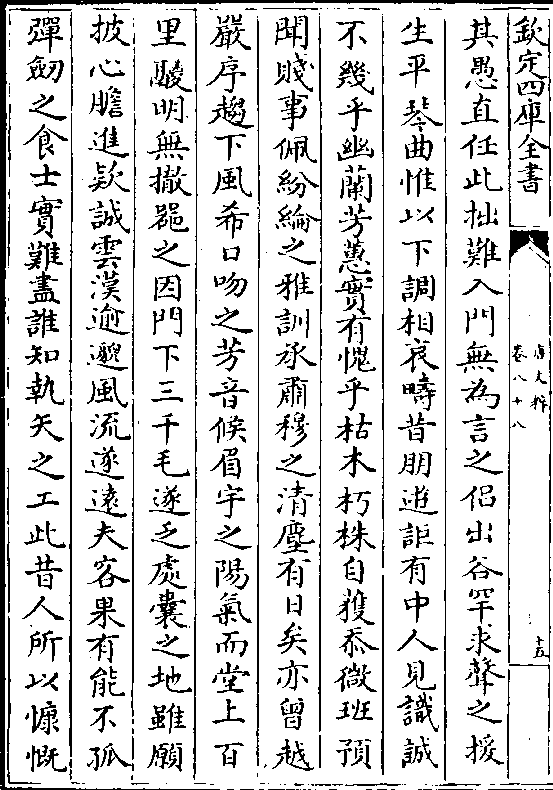 欽定四庫全書
唐文粹
卷八十八
十五
其愚直任此拙難入門無為言之侣出谷罕求聲之援
生平琴曲惟以下調相哀疇昔朋遊詎有中人見識誠
不幾乎幽蘭芳蕙實有愧乎枯木朽株自獲忝微班預
聞賤事佩紛綸之雅訓承肅穆之清塵有日矣亦曾越
嚴序趨下風希口吻之芳音候眉宇之陽氣而堂上百
里鬷明無撤器之因門下三千毛遂乏處囊之地雖願
披心膽進欵誠雲漢逾邈風流遂遠夫客果有能不孤
彈劒之食士實難盡誰知執矢之工此昔人所以慷慨